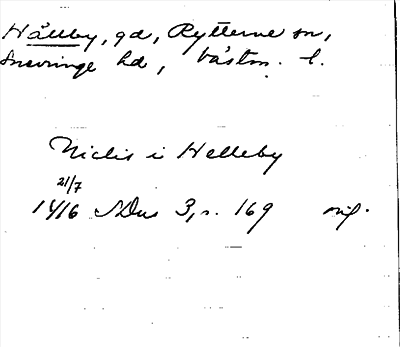 Hållby, gd, Rytterne sn,
Snevringe hd, Västm. l.
Niclis i Helleby
21/7
1416 SDns 3, s. 169 orig.